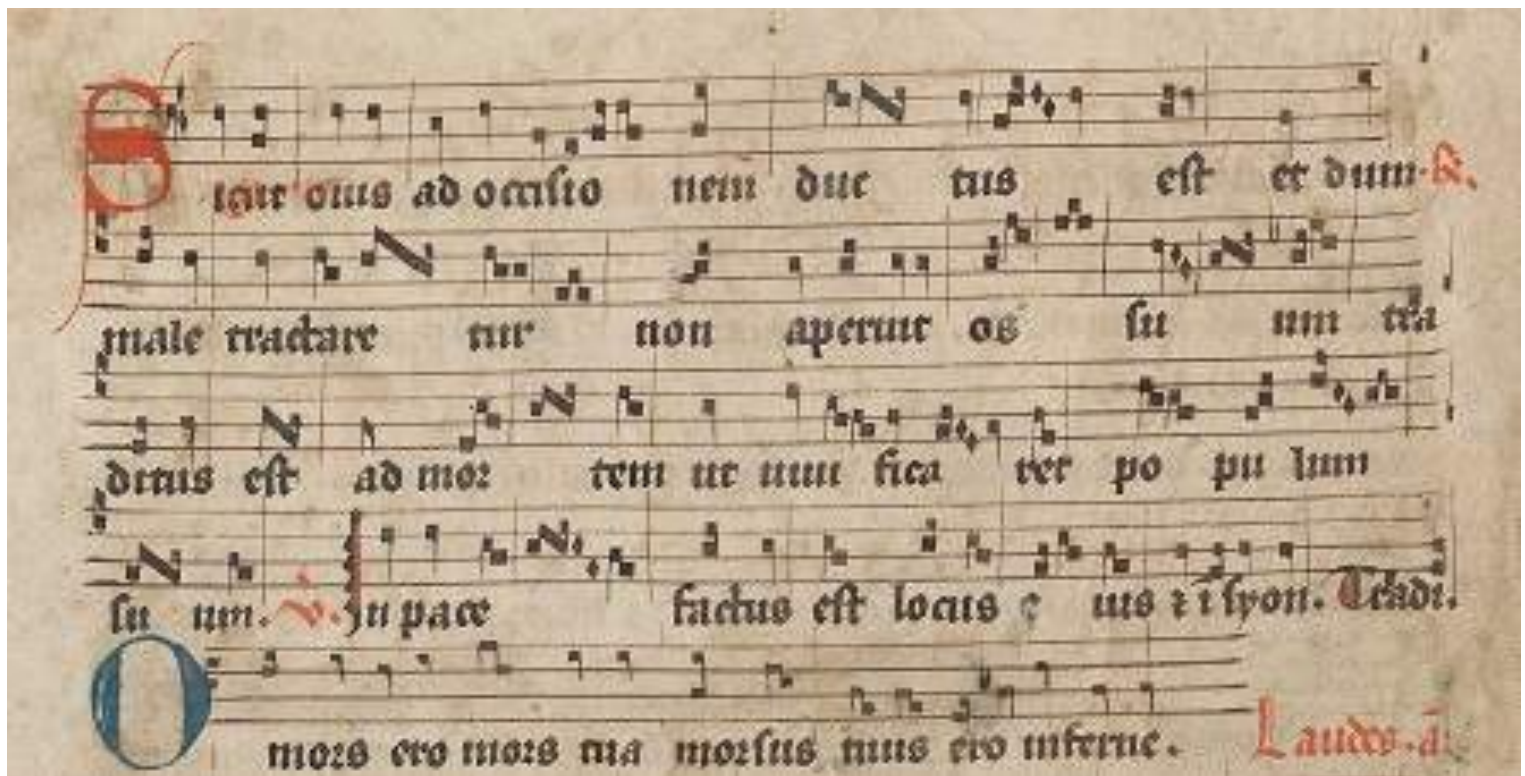 Sicut ouis ad occisio nem duc tus est et dum R.
male tractare tur non aperuit os su um tra
ditus est ad mor tem ut uiui fica ret po pu lum
su um. V. In pace factus est locus e ius ⁊ ī syon. Tradi.
O mors ero mors tua morsus tuus ero inferne. Laudes. ā